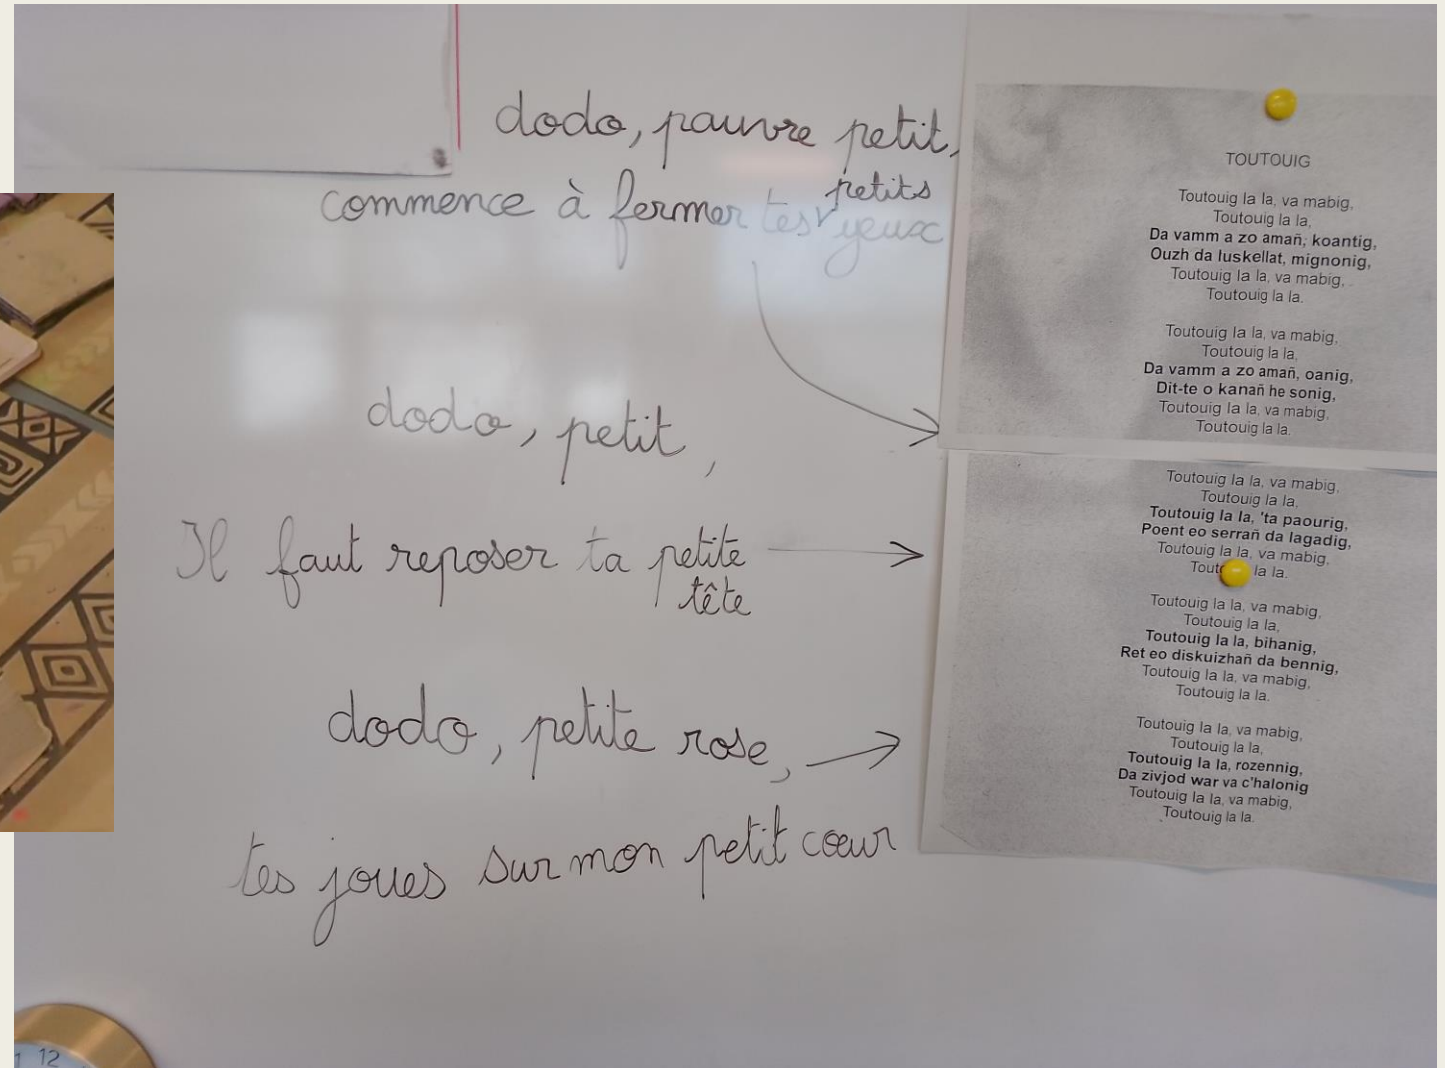 dodo, pauvre petit,
petits
commence à fermer tes yeux
dodo, petit,
Il faut reposer ta petite
tête
dodo, petite rose,
tes joues sur mon petit cœur
TOUTOUIG
Toutouig la la, va mabig,
Toutouig la la,
Da vamm a zo amañ, koantig,
Ouzh da luskellat, mignonig,
Toutouig la la, va mabig,
Toutouig la la.
Toutouig la la, va mabig,
Toutouig la la,
Da vamm a zo amañ, oanig,
Dit-te o kanañ he sonig,
Toutouig la la, va mabig,
Toutouig la la.
Toutouig la la, va mabig,
Toutouig la la,
Toutouig la la, 'ta paourig,
Poent eo serrañ da lagadig,
Toutouig la la, va mabig,
la la.
Toutouig la la, va mabig,
Toutouig la la,
Toutouig la la, bihanig,
Ret eo diskuizhañ da bennig,
Toutouig la la, va mabig,
Toutouig la la.
Toutouig la la, va mabig,
Toutouig la la,
Toutouig la la, rozennig,
Da zivjod war va c'halonig
Toutouig la la, va mabig,
Toutouig la la.
12